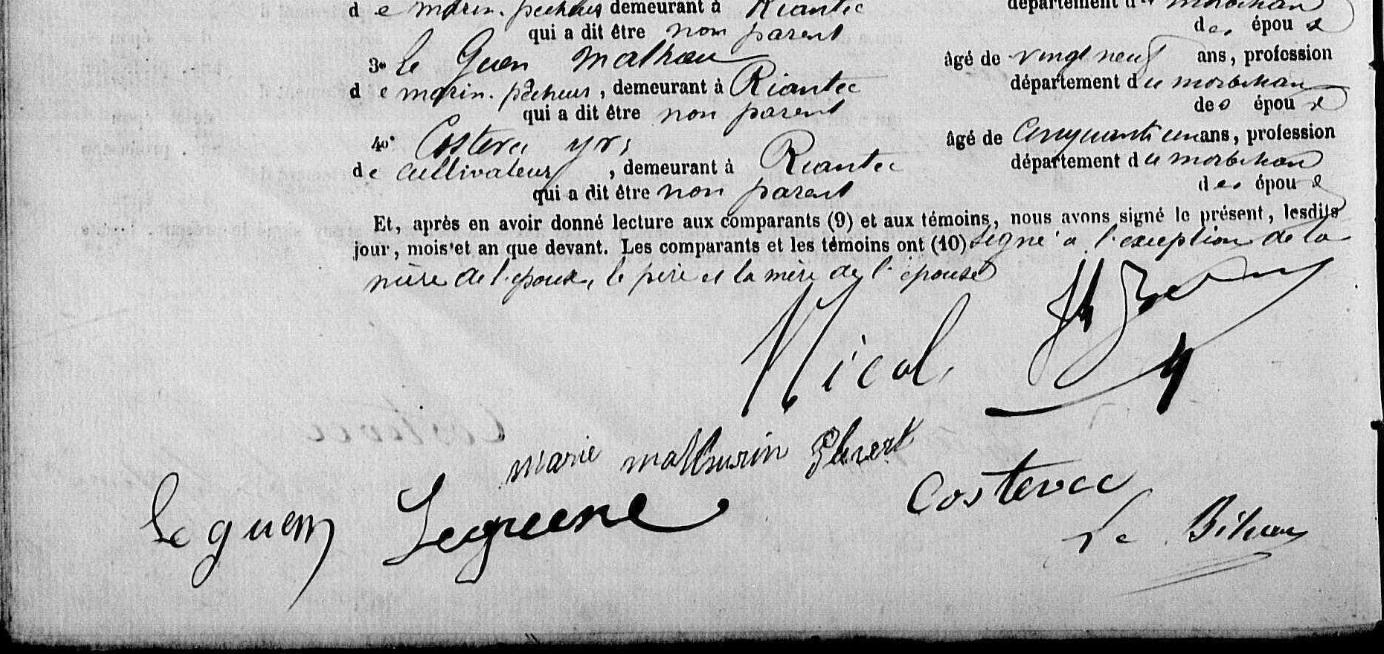 d e marin. pêcheur demeurant à Riantec département du morbihan
qui a dit être non parent des épou x
3º Le Guen Mathieu âgé de vingt neuf ans, profession
d e marin. pêcheur, demeurant à Riantec département du morbihan
qui a dit être non parent des épou x
4º Costevec yves âgé de Cinquante un ans, profession
de cultivateur, demeurant à Riantec département du morbihan
qui a dit être non parent des épou x
Et, après en avoir donné lecture aux comparants (9) et aux témoins, nous avons signé le présent, lesdits
jour, mois et an que devant. Les comparants et les témoins ont (10) signé a l'exception de la
mère de l'époux, le père et la mère de l'épouse
Nicol
marie mathurin
Costevec
le guen Leguene
Le Bihan